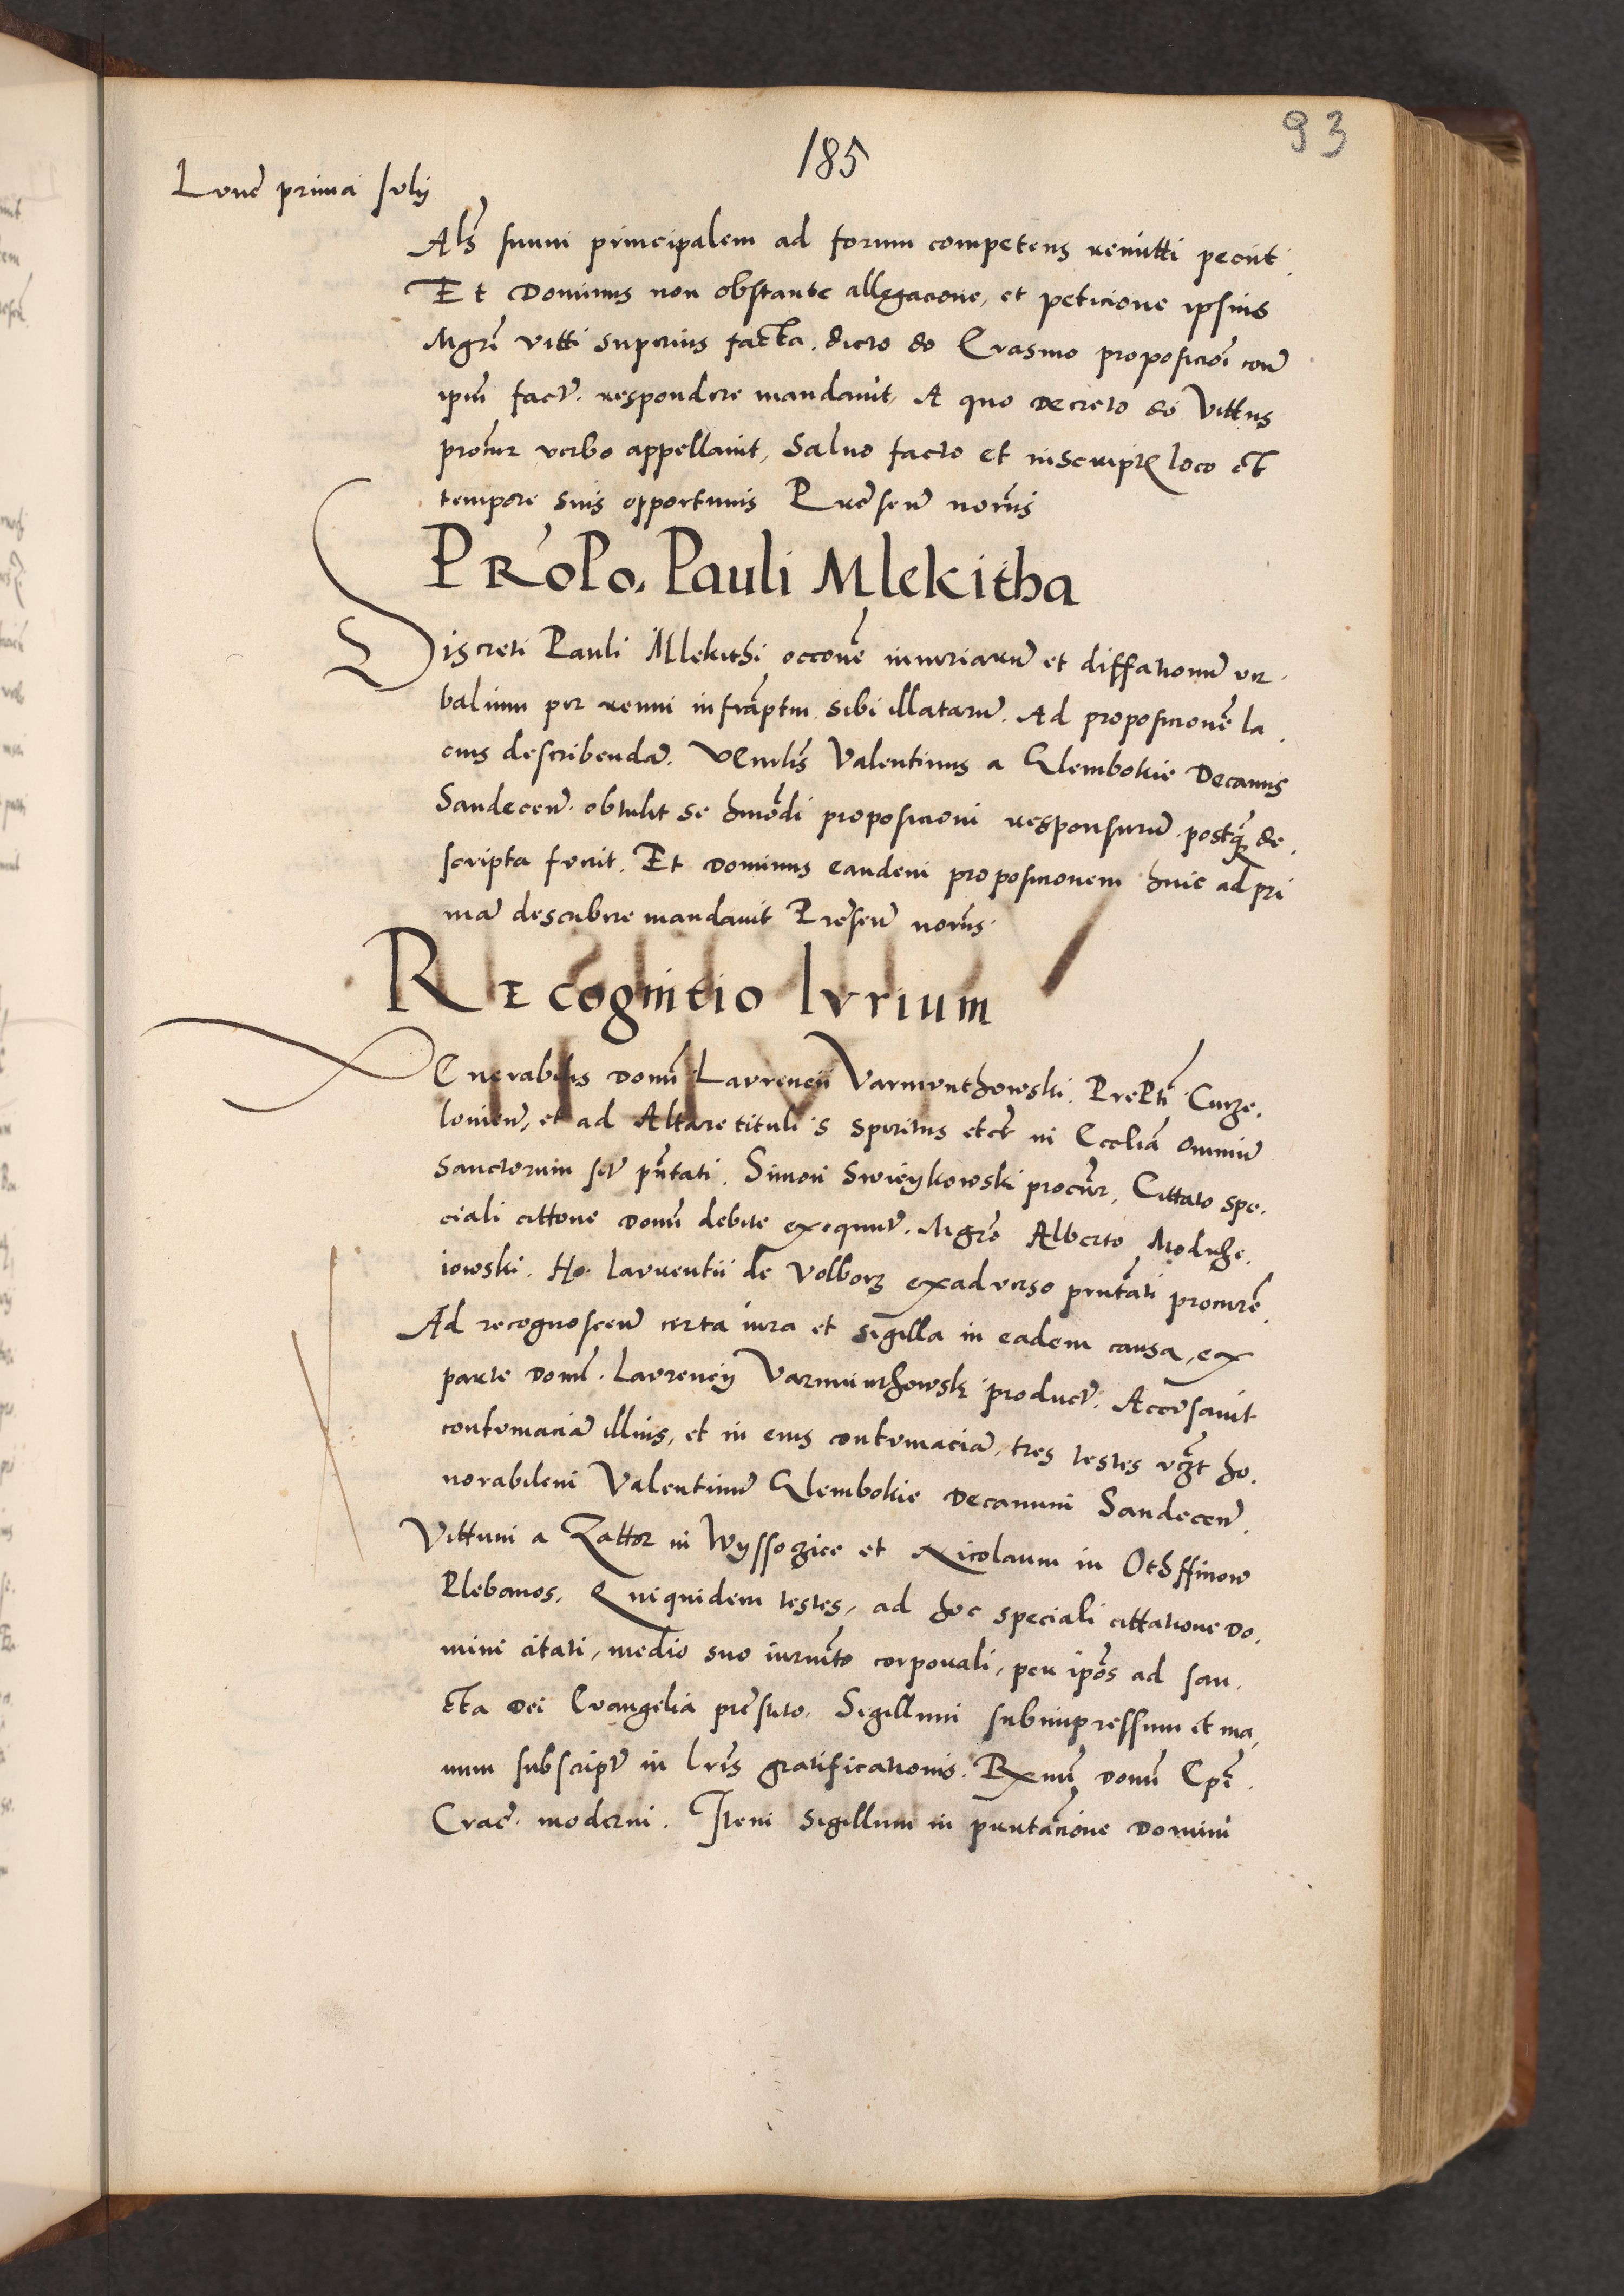 93
185
Lune prima Julii
Als suum principalem ad forum competens remitti peciit.
Et Dominus non obstante allegacione, et peticione ipsius
Mgri Vitti superius facta. dicto do Erasmo proposicioi con
ipm fact. respondere mandavit, A quo Decreto do Vittus
procur verbo appellavit, Salvo facto et inscript loco et
tempore suis opportunis Presen noriis
PROPO. Pauli Mlekitha
Discreti Pauli Mlekithi occone iniuriarum et diffationum ver.
balium per reum infrascptm sibi illatarum. Ad proposicione la.
cius describendam. Venrlis Valentinus a Glembokie Decanus
Sandecen. obtulit se hmodi proposicioni responsurum postq de.
scripta fuerit. Et Dominus eandem proposicionem hinc ad pri
mam describere mandavit Presen noriis.
Recognitio Iurium
Venerabilis Domi Laurencii Varmunthowski. Prepti Curze.
lovien, et ad Altare tituli S Spiritus etcr in Ecclia Omnium
Sanctorum sit pntati. Simon Swieykowski procur, Cittato spe.
ciali cittone Domi debite exequut. Mgro Alberto Modrze.
iowski. Ho. Laurentii de Volborz exadverso prntati procure.
Ad recognoscen certa iura et sigilla in eadem causa, ex
parte Domi. Laurencij Varmunthowski product. Accusavit
contumaciam illius, et in eius contumaciam, tres testes vzt ho.
norabilem Valentinum Glembokie Decanum Sandecen.
Vittum a Zattor in Wyssozice et Nicolaum in Othffinow
Plebanos, Quiquidem testes, ad hoc speciali cittatione Do.
mini citati, medio suo iurmto corporali, per ipos ad san.
cta Dei Evangelia prestito, Sigillum subimpressum et ma,
num subscript in lris gratificationis. Rxmi Domi Epi.
Crac. moderni. Item sigillum in prntacione Domini